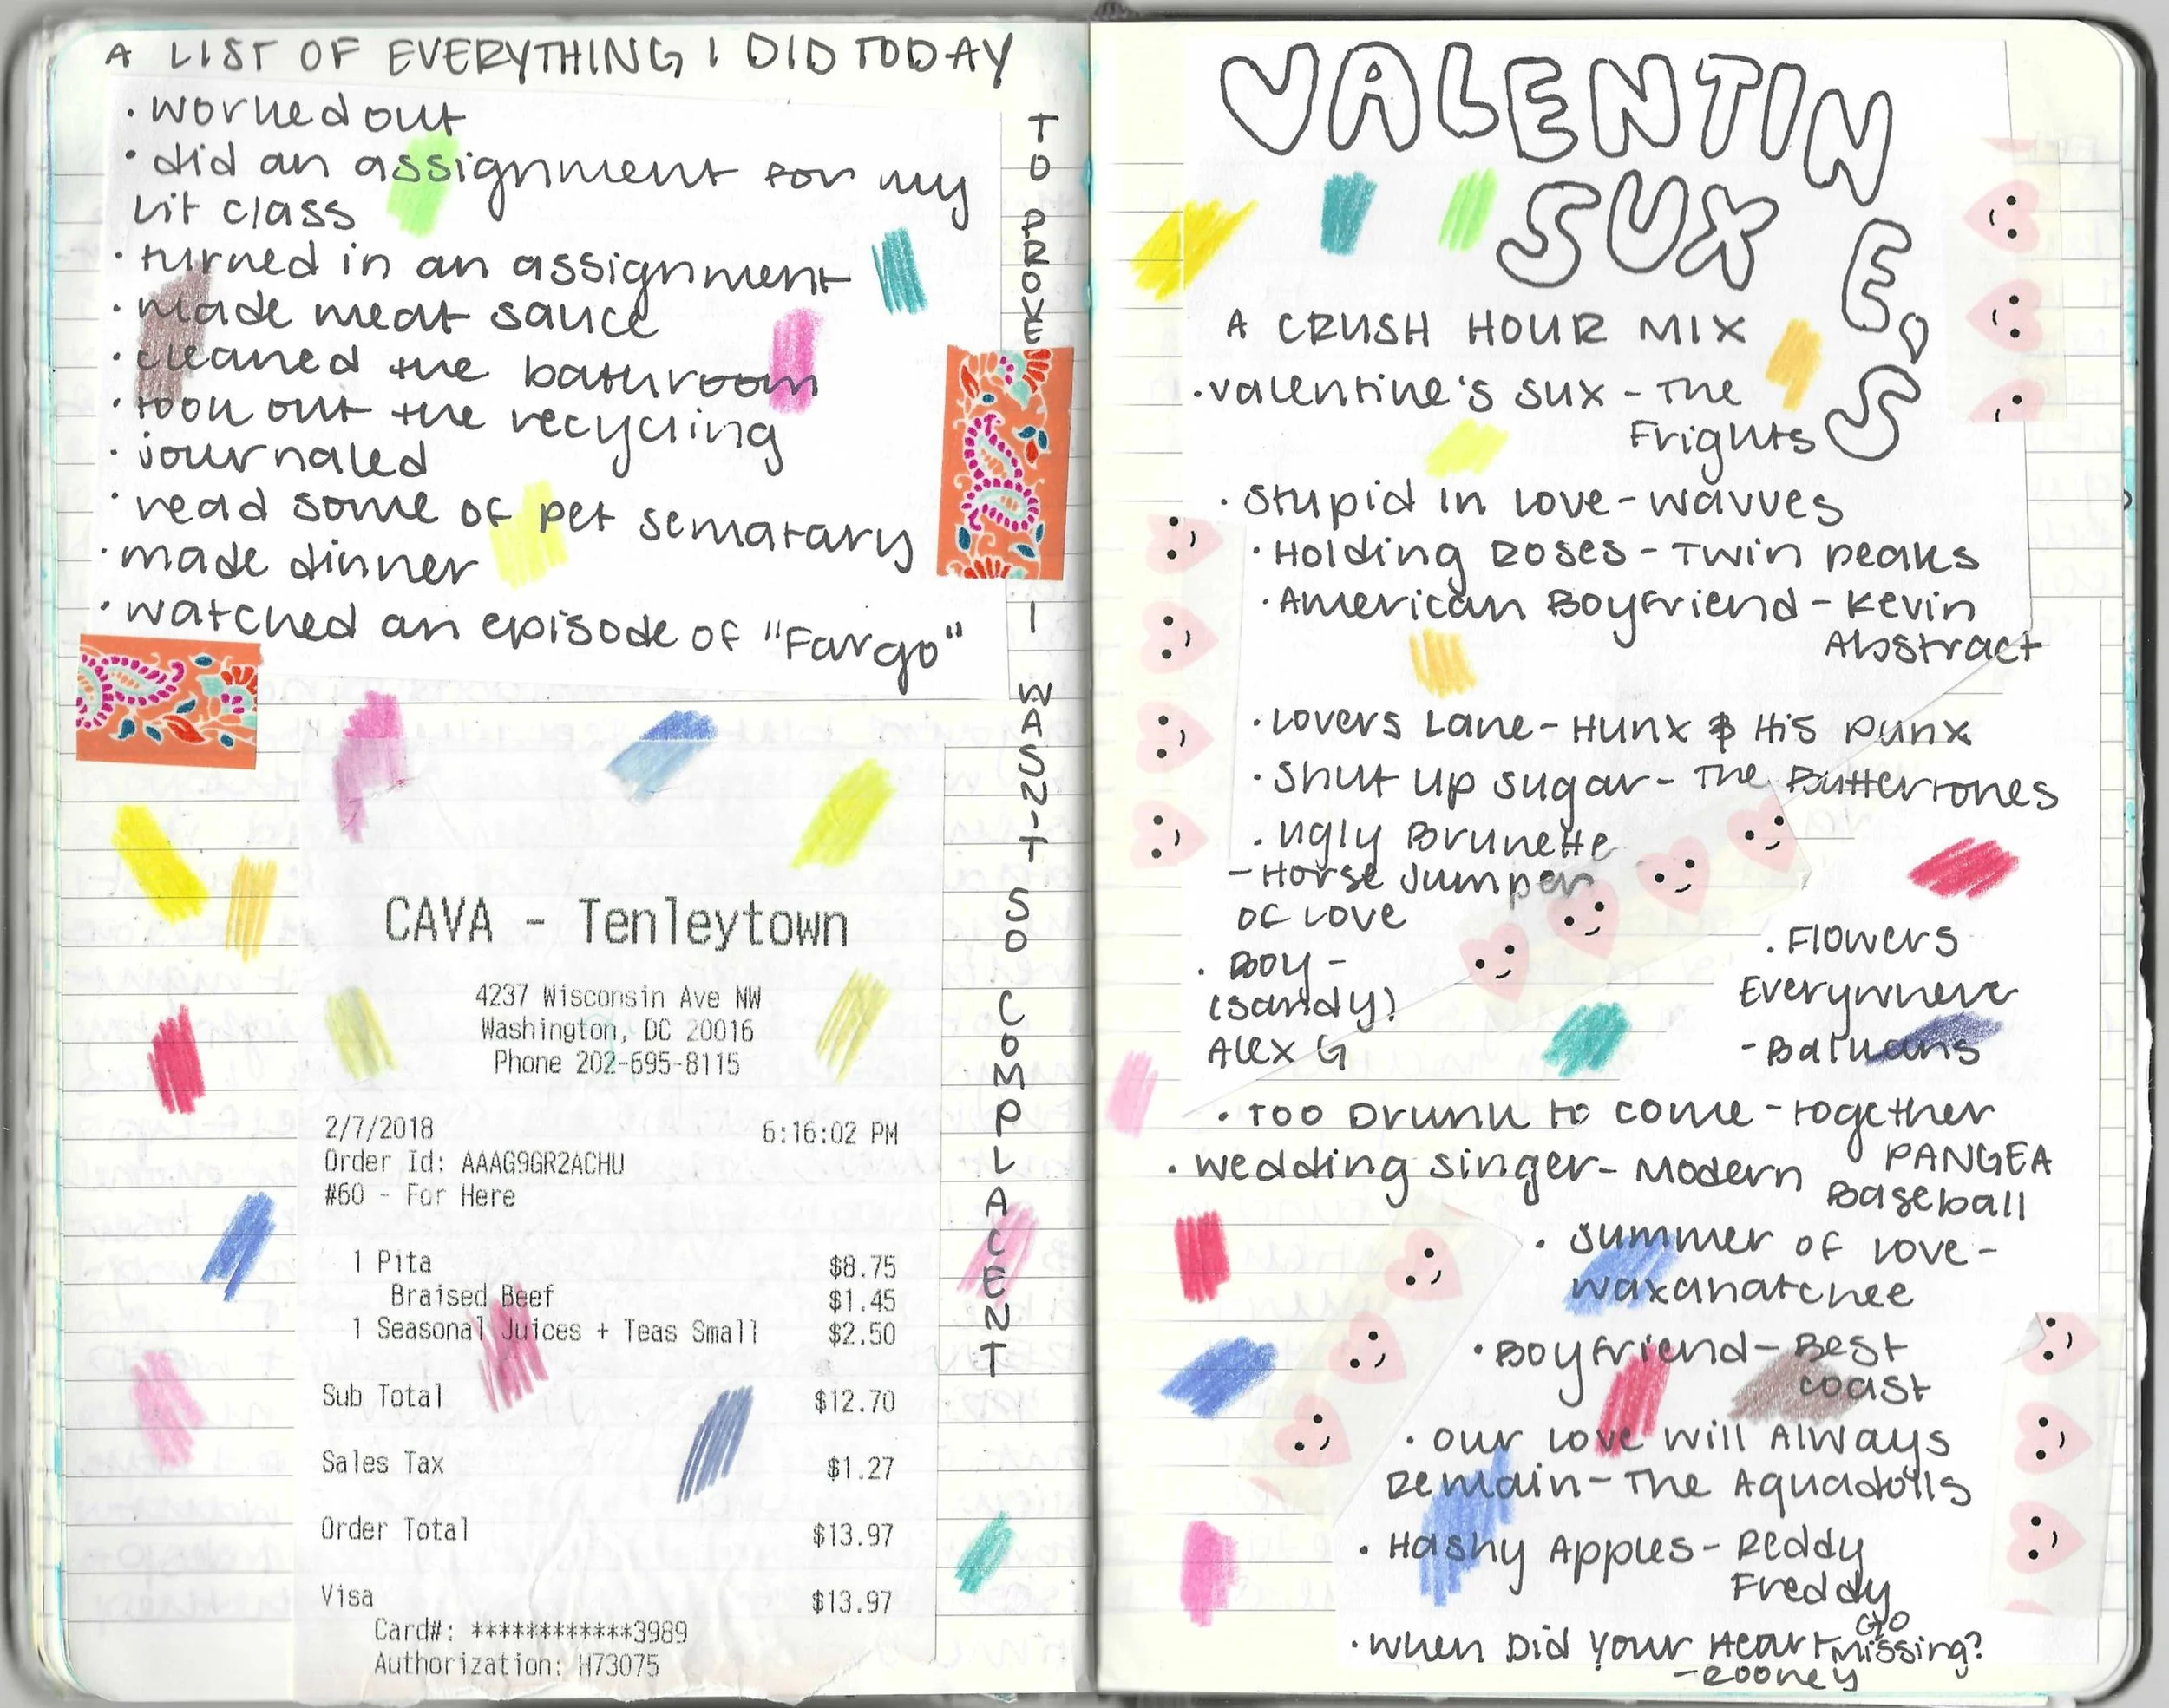 A LIST OF EVERYTHING I DID TODAY
· worked out
· did an assignment for my
lit class
· turned in an assignment
· made meat sauce
· cleaned the bathroom
· took out the recycling
· journaled
· read some of pet sematary
· made dinner
· watched an episode of "Fargo"
TO PROVE I WASN'T SO COMPLACENT
CAVA - Tenleytown
4237 Wisconsin Ave NW
Washington, DC 20016
Phone 202-695-8115
2/7/2018 6:16:02 PM
Order Id: AAAG9GR2ACHU
#60 - For Here
1 Pita $8.75
Braised Beef $1.45
1 Seasonal Juices + Teas Small $2.50
Sub Total $12.70
Sales Tax $1.27
Order Total $13.97
Visa $13.97
Card#: ************3989
Authorization: H73075
VALENTINE'S
SUX
A CRUSH HOUR MIX
· valentine's sux - The
Frights
· Stupid in Love - Wavves
· Holding Roses - Twin Peaks
· American Boyfriend - Kevin
Abstract
· Lovers Lane - Hunx & His Punx
· Shut up sugar - The Buttertones
· Ugly Brunette
- Horse Jumper
of Love
· Boy -
(sandy)
Alex G
· Flowers
Everywhere
- Bathans
· Too Drunk to come - together
PANGEA
· wedding singer - Modern
Baseball
· Summer of Love -
waxahatchee
· Boyfriend - Best
Coast
· Our Love Will Always
Remain - The Aquadolls
· Hashy Apples - Reddy
Freddy
· When Did Your Heart Go Missing?
- Rooney